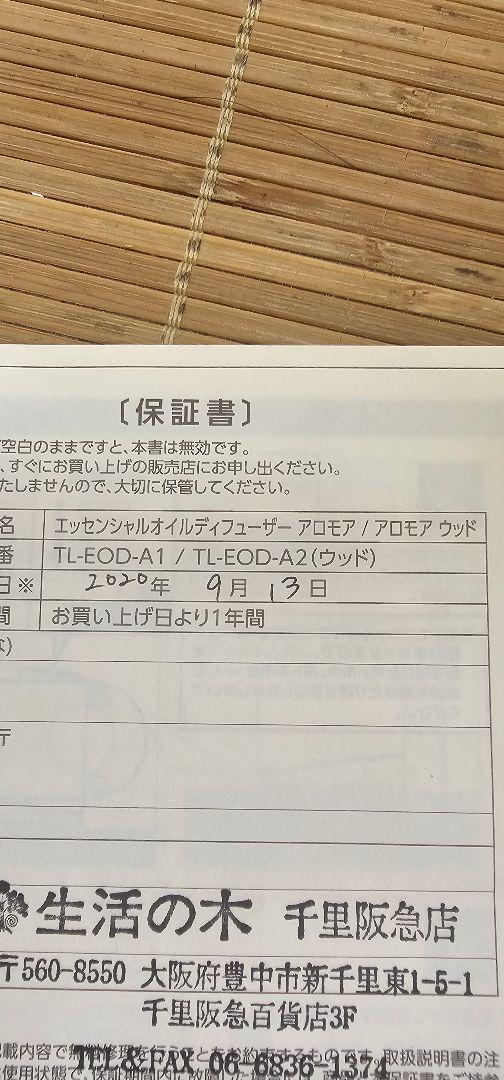 〔保証書〕
空白のままですと、本書は無効です。
、すぐにお買い上げの販売店にお申し出ください。
たしませんので、大切に保管してください。
名 エッセンシャルオイルディフューザー アロモア / アロモア ウッド
番 TL-EOD-A1 / TL-EOD-A2(ウッド)
日※ 2020年 9月 13日
間 お買い上げ日より1年間
な)
〒
生活の木 千里阪急店
〒560-8550 大阪府豊中市新千里東1-5-1
千里阪急百貨店3F
TEL&FAX 06-6836-1374
記載内容で無料修理を行うことをお約束するものです。取扱説明書の注
使用状態で、保証期間内に故障した場合